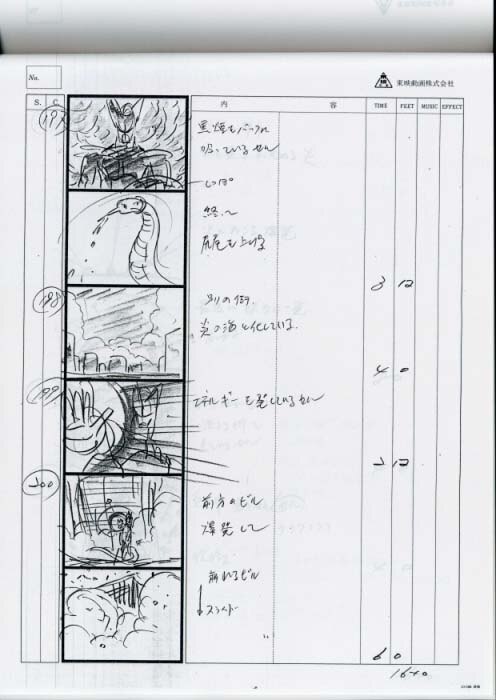 No.
東映動画株式会社
S. C. 内 容 TIME FEET MUSIC EFFECT
197
黒煙をバックに
吸っているセル
しっぽ
終へ
尻尾を上げる
3 12
198
別の街
炎の海と化している.
4 0
199
エネルギーを発しているセル
2 12
200
前方のビル
爆発して
崩れるビル
スライド
6 0
16+0